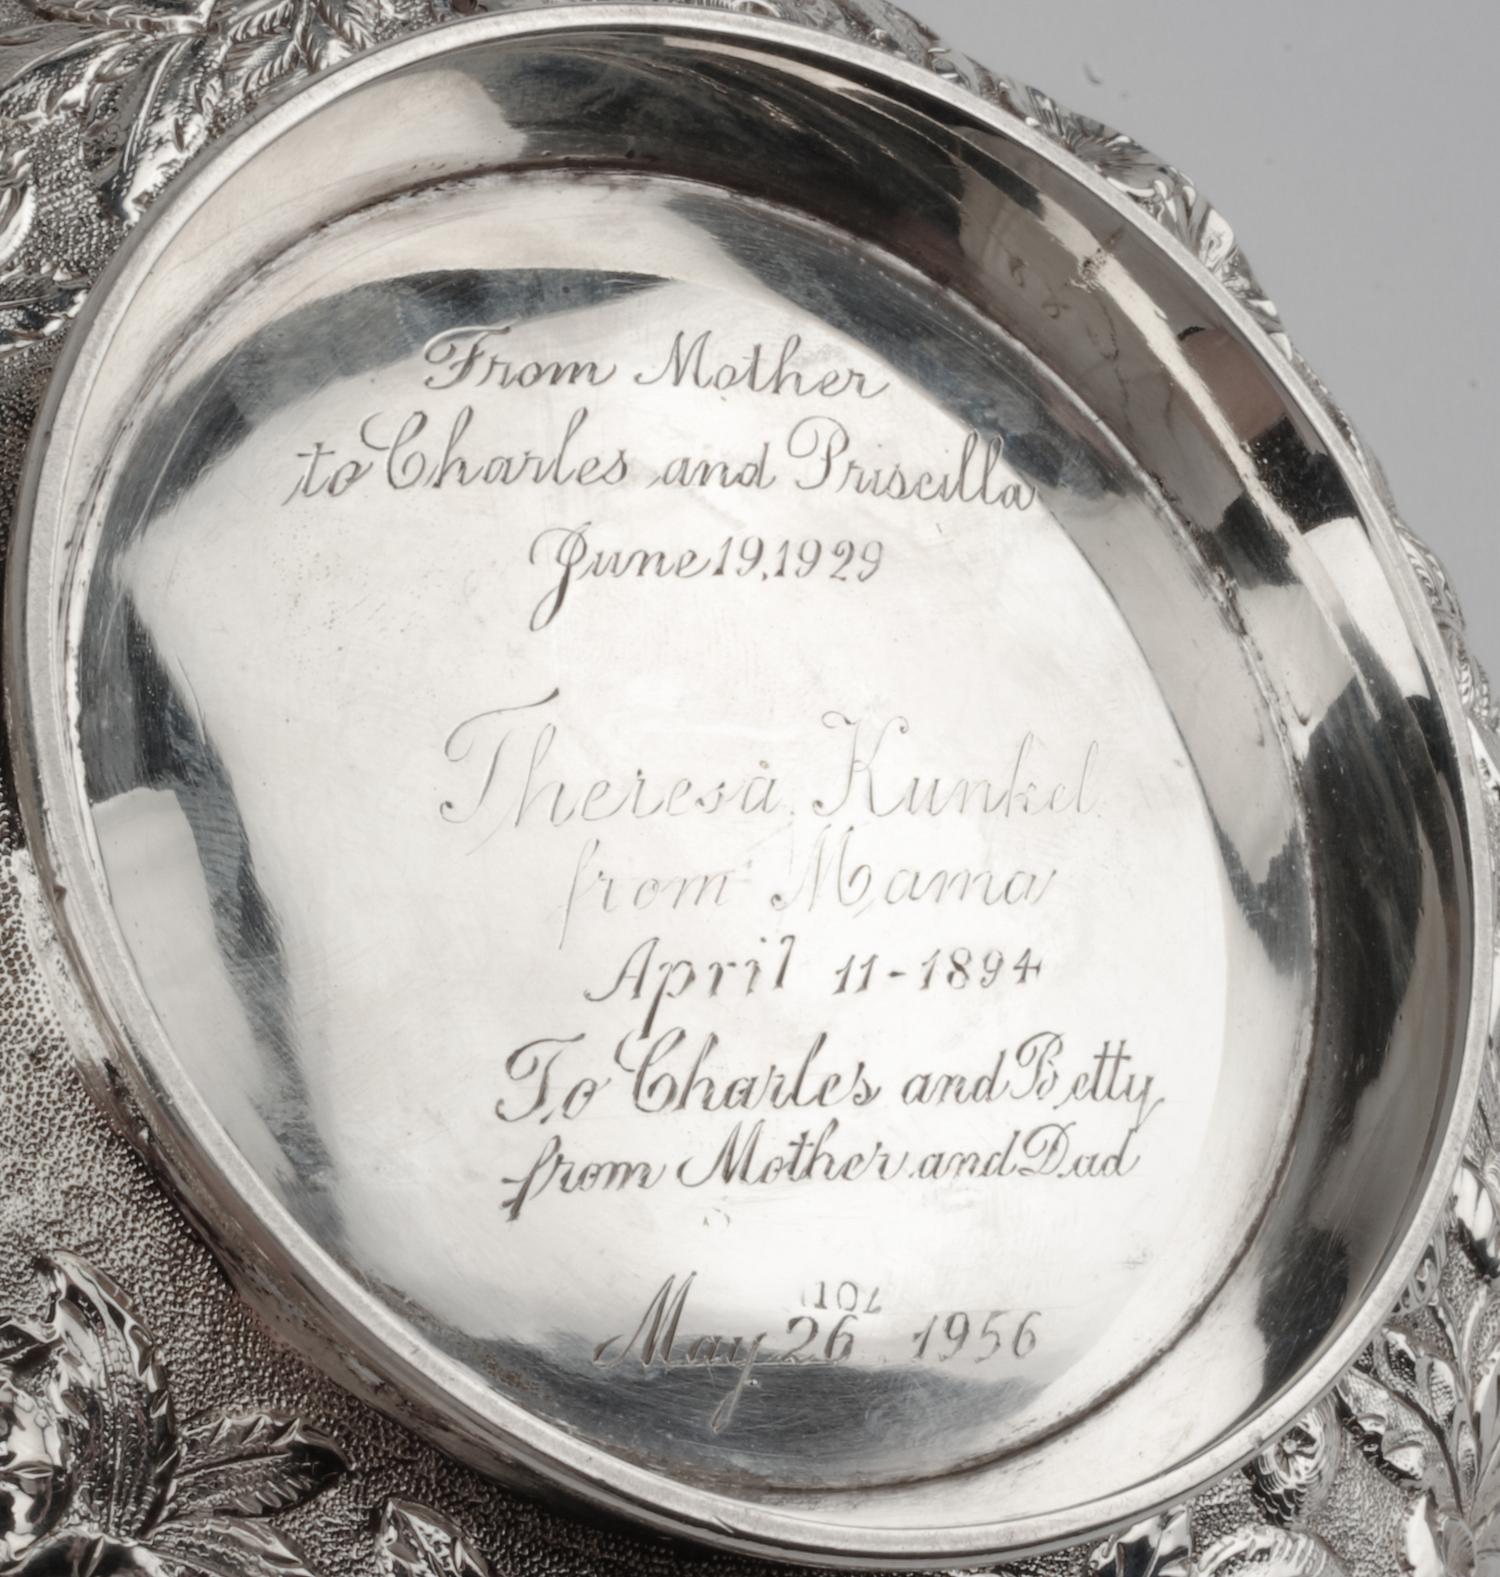 From Mother
to Charles and Priscilla
June 19, 1929
Theresa Kunkel
from Mama
April 11-1894
To Charles and Betty
from Mother and Dad
May 26 1956